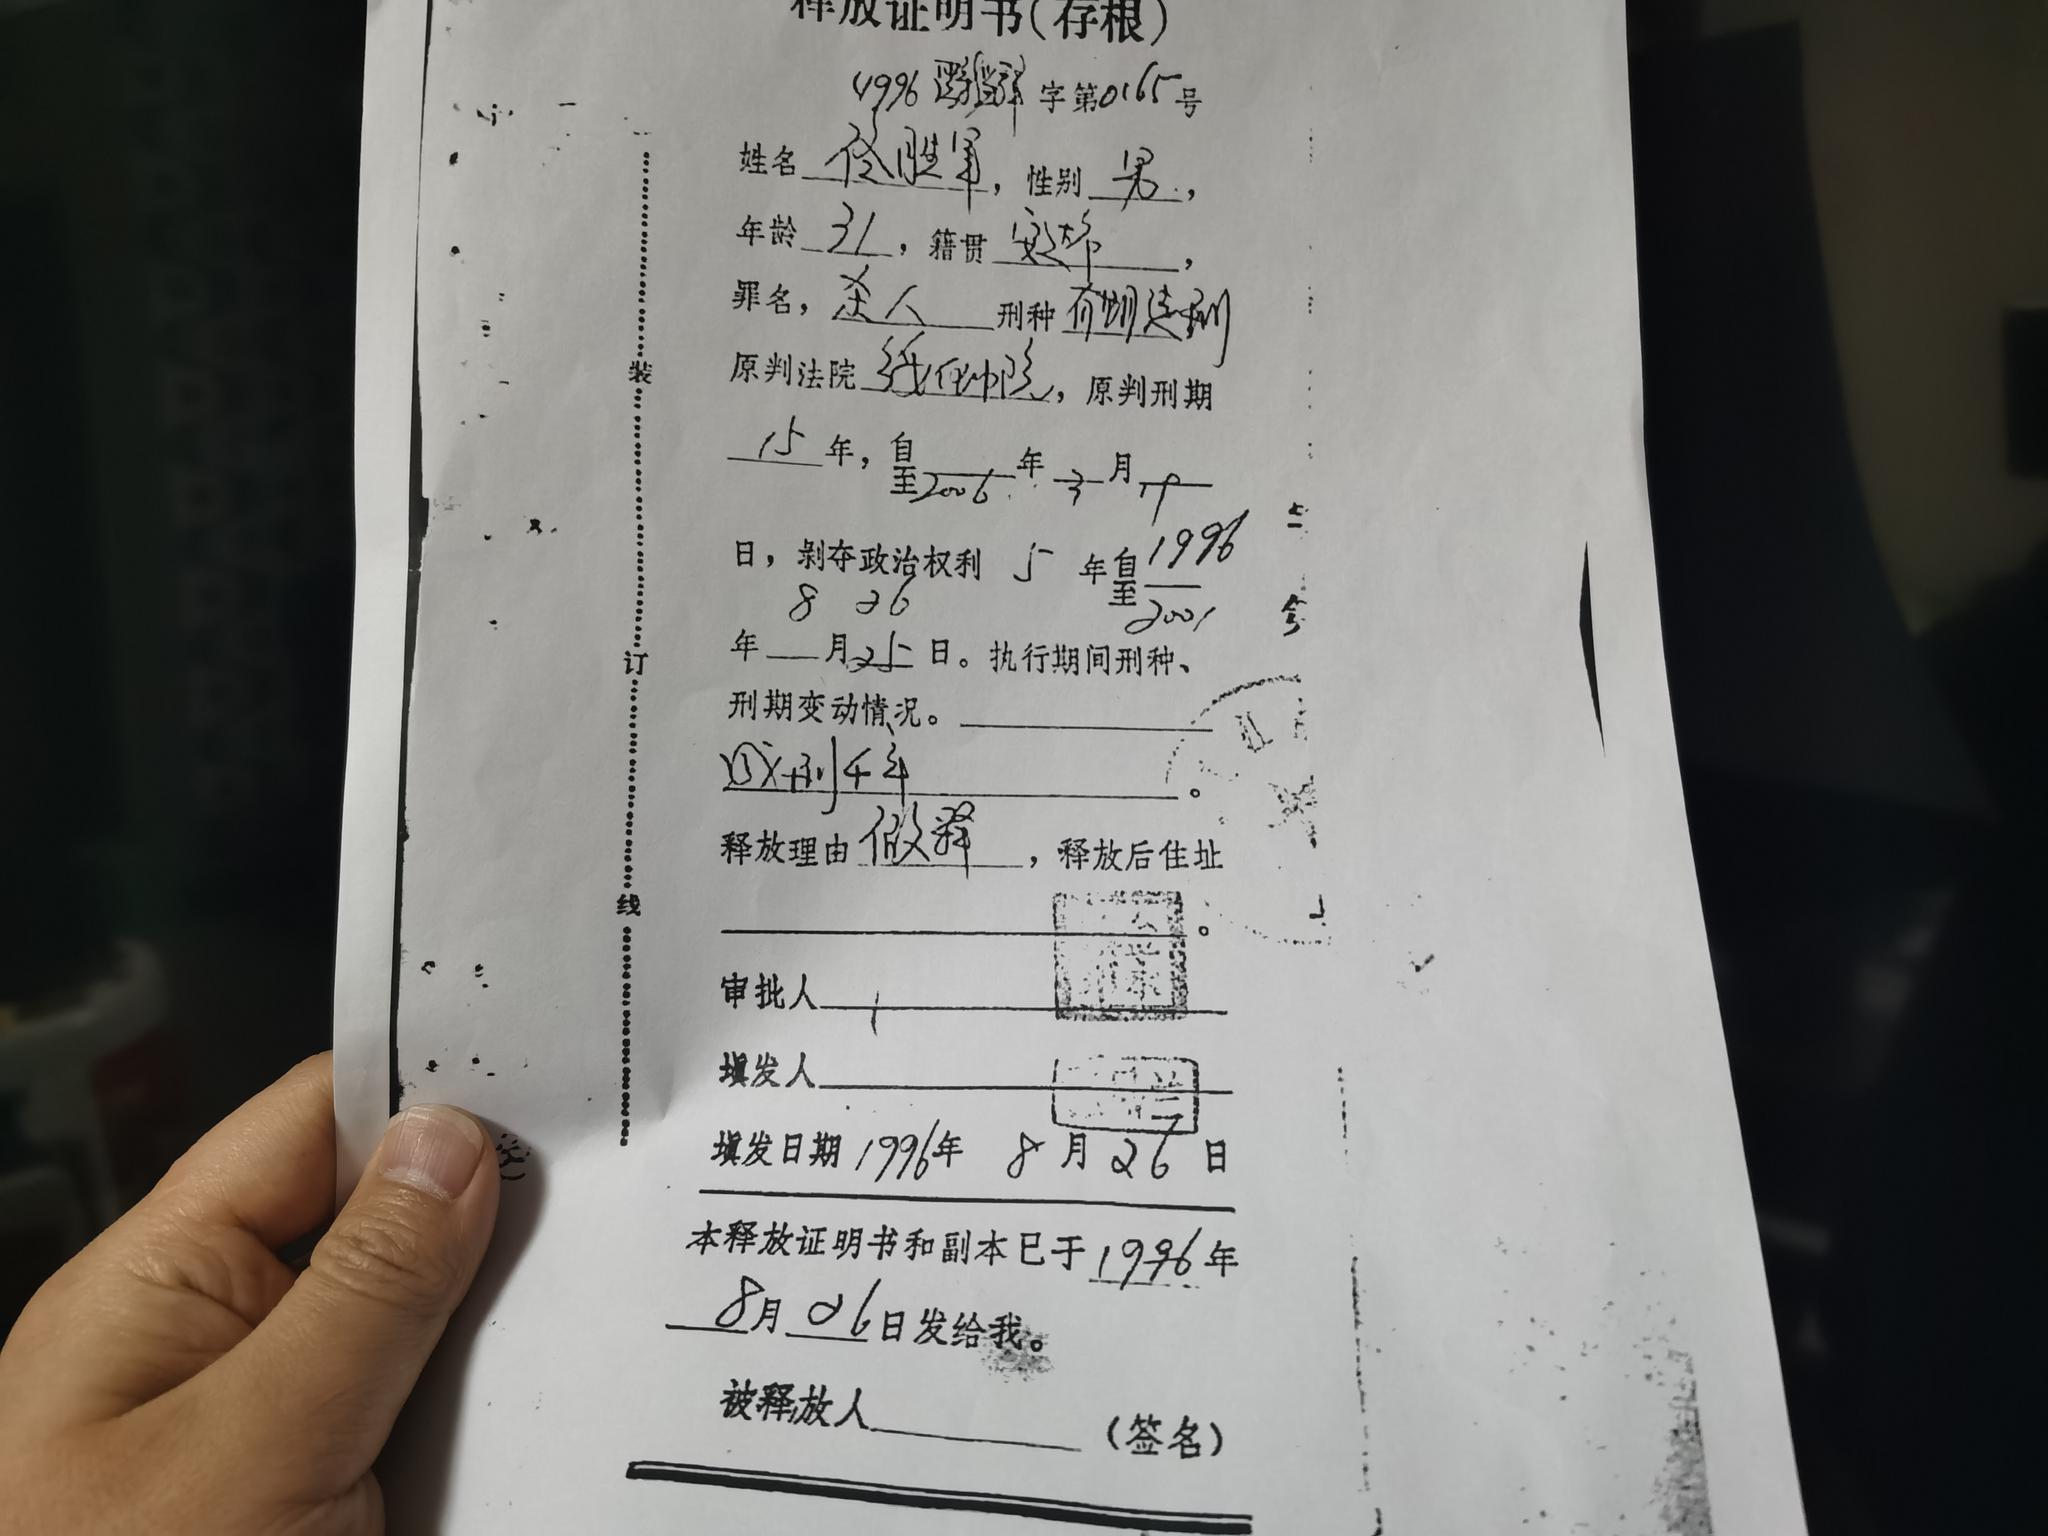 释放证明书(存根)
1996 释字第0165号
姓名 佟胜军，性别 男，
年龄 31，籍贯 安达市，
罪名，杀人 刑种 有期徒刑
原判法院 绥化中院，原判刑期
15年，自 年 月
至2006 3 19
日，剥夺政治权利 5 年自1996
8 26 至2001
年 月25日。执行期间刑种、
刑期变动情况。
减刑4年。
释放理由 假释，释放后住址
。
审批人
填发人
填发日期 1996年 8月26日
本释放证明书和副本已于1996年
8月26日发给我。
被释放人 (签名)
装
订
线